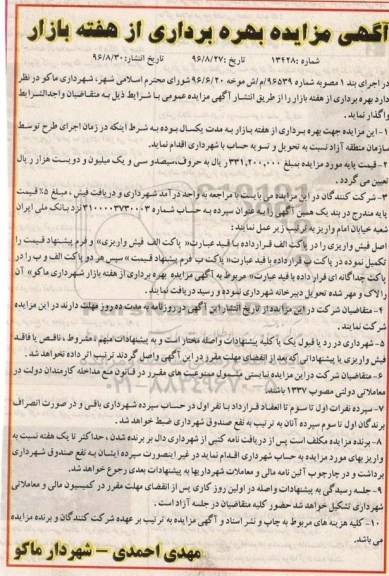 آگهی مزایده بهره برداری از هفته بازار
شماره: ۱۳۴۲۸ تاریخ: ۹۶/۸/۲۷ تاریخ انتشار: ۹۶/۸/۳۰
در اجرای بند ۱ مصوبه شماره ۹۶۵۳۹/م/ش مورخه ۹۶/۶/۲۰ شورای محترم اسلامی شهر، شهرداری ماکو در نظر
دارد بهره برداری از هفته بازار را از طریق انتشار آگهی مزایده عمومی با شرایط ذیل به متقاضیان واجدالشرایط
واگذار نماید.
۱- این مزایده جهت بهره برداری از هفته بازار به مدت یکسال بوده به شرط اینکه در زمان اجرای طرح توسط
سازمان منطقه آزاد نسبت به تحویل و تسویه حساب با شهرداری اقدام نماید.
۲- قیمت پایه مورد مزایده بمبلغ ۳۳۱,۲۰۰,۰۰۰ ریال به حروف سیصد و سی و یک میلیون و دویست هزار ریال
تعیین می گردد.
۳- شرکت کنندگان در این مزایده می بایست با مراجعه به واحد درآمد شهرداری و دریافت فیش، مبلغ ۵٪ قیمت
پایه مندرج در بند یک همین آگهی را به عنوان سپرده به حساب شماره ۳۱۰۰۰۰۳۷۳۰۰۰۳ نزد بانک ملی ایران
شعبه خیابان امام واریز به ترتیب زیر عمل نمایند:
اصل فیش واریزی را در پاکت الف قرارداده با قید عبارت« پاکت الف فیش واریزی» و فرم پیشنهاد قیمت را
تکمیل نموده در پاکت ب قرارداده با قید عبارت« پاکت ب فرم پیشنهاد قیمت » سپس هر دو پاکت الف و ب را در
پاکت جداگانه ای قرار داده با قید عبارت« مربوط به آگهی مزایده بهره برداری از هفته بازار شهرداری ماکو» آن
را لاک و مهر شده تحویل دبیرخانه شهرداری نموده و رسید دریافت نمایند.
۴- متقاضیان شرکت در این مزایده از تاریخ انتشار این آگهی در روزنامه به مدت ده روز مهلت دارند در این مزایده
شرکت نمایند.
۵- شهرداری در رد یا قبول یک یا کلیه پیشنهادات واصله مختار است و به پیشنهادات مبهم، مشروط، ناقص یا فاقد
فیش واریزی یا پیشنهاداتی که بعد از انقضای مهلت مقرر در این آگهی واصل گردند ترتیب اثر داده نخواهد شد.
۶- متقاضیان شرکت در این مزایده نبایستی مشمول ممنوعیت های مقرر در قانون منع مداخله کارمندان دولت در
معاملاتی دولتی مصوب ۱۳۳۷ باشند.
۷- سپرده نفرات اول تا سوم تا انعقاد قرارداد با نفر اول در حساب سپرده شهرداری باقی و در صورت انصراف
برندگان اول تا سوم سپرده آنان به ترتیب به نفع صندوق شهرداری ضبط خواهد شد.
۸- برنده مزایده مکلف است پس از دریافت نامه کتبی از شهرداری دال بر برنده شدن، حداکثر تا یک هفته نسبت به
واریز بهای مورد مزایده به حساب شهرداری اقدام نماید در غیر اینصورت سپرده ایشان به نفع صندوق شهرداری
برداشت و در چارچوب آئین نامه مالی و معاملات شهرداریها به پیشنهادات بعدی رجوع خواهد شد.
۹- جلسه رسیدگی به پیشنهادات واصله در اولین روز کاری پس از انقضای مهلت مقرر در کمیسیون مالی و معاملاتی
شهرداری تشکیل خواهد شد حضور کلیه متقاضیان در جلسه آزاد است.
۱۰- کلیه هزینه های مربوط به چاپ و نشر اسناد و آگهی مزایده به ترتیب بر عهده شرکت کنندگان و برنده مزایده
می باشد.
مهدی احمدی – شهردار ماکو